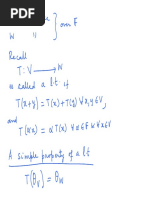 W " over F
Recall
T : V ⟶ W
is called a l.t if
T(x+y) = T(x)+T(y) ∀x,y∈V,
and
T(αx) = αT(x) ∀α∈F & ∀x∈V
A simple property of a l.t
T(θ_V) = θ_W